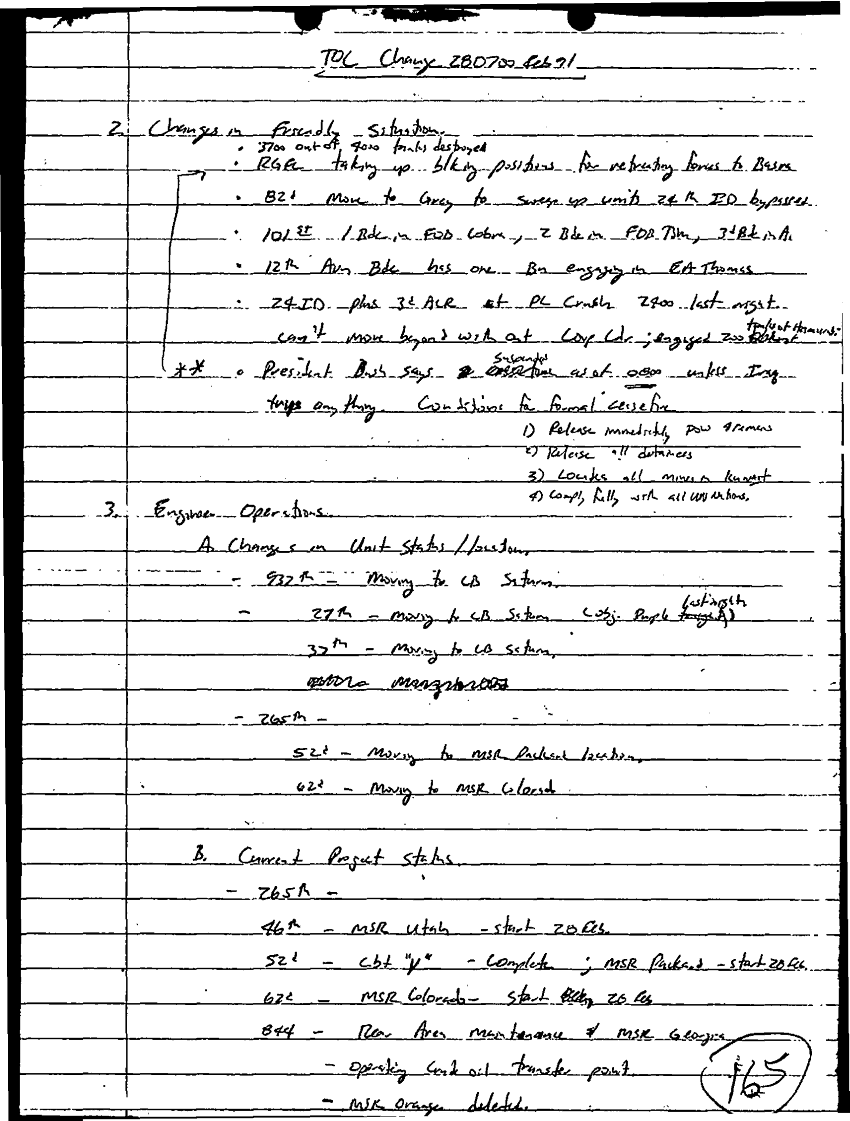 TOC Change 280700 Feb 91
2. Changes in Friendly Situation.
• 3700 out of 4000 tanks destroyed
• RGFC taking up blking positions for retreating forces to Basra
• 82d Move to Grey to sweep up units 24th ID bypassed
• 101st 1 Bde in FOB Cobra, 2 Bde in FOB Tim, 3d Bde in A.
• 12th Avn Bde has one Bn engaging in EA Thomas
• 24 ID plus 3d ACR at PL Crush 2400 last night.
can't move beyond with out Corp Cdr.; engaged 200
** • President Bush says suspended as of 0800 unless Iraq
anything. Conditions for formal ceasefire
1) Release immediately POW & remains
2) Release all detainees
3) Locates all mines in Kuwait
4) Comply fully with all UN
3. Engineer Operations
A. Changes in Unit Status/location.
- 937th - Moving to CB Saturn.
- 27th - moving to CB Saturn (obj. Purple last night)
37th - Moving to CB Saturn.
- 265th -
52d - Moving to MSR Packard location.
62d - Moving to MSR Colorado
B. Current Project Status.
- 265th -
46th - MSR Utah - start 28 Feb.
52d - Cbt "V" - Complete ; MSR Packard - start 28 Feb.
62d - MSR Colorado - Start 28 Feb
844 - Rear Area Maintenance of MSR Georgia
- Operating oil transfer point.
- MSR Orange deleted.
165